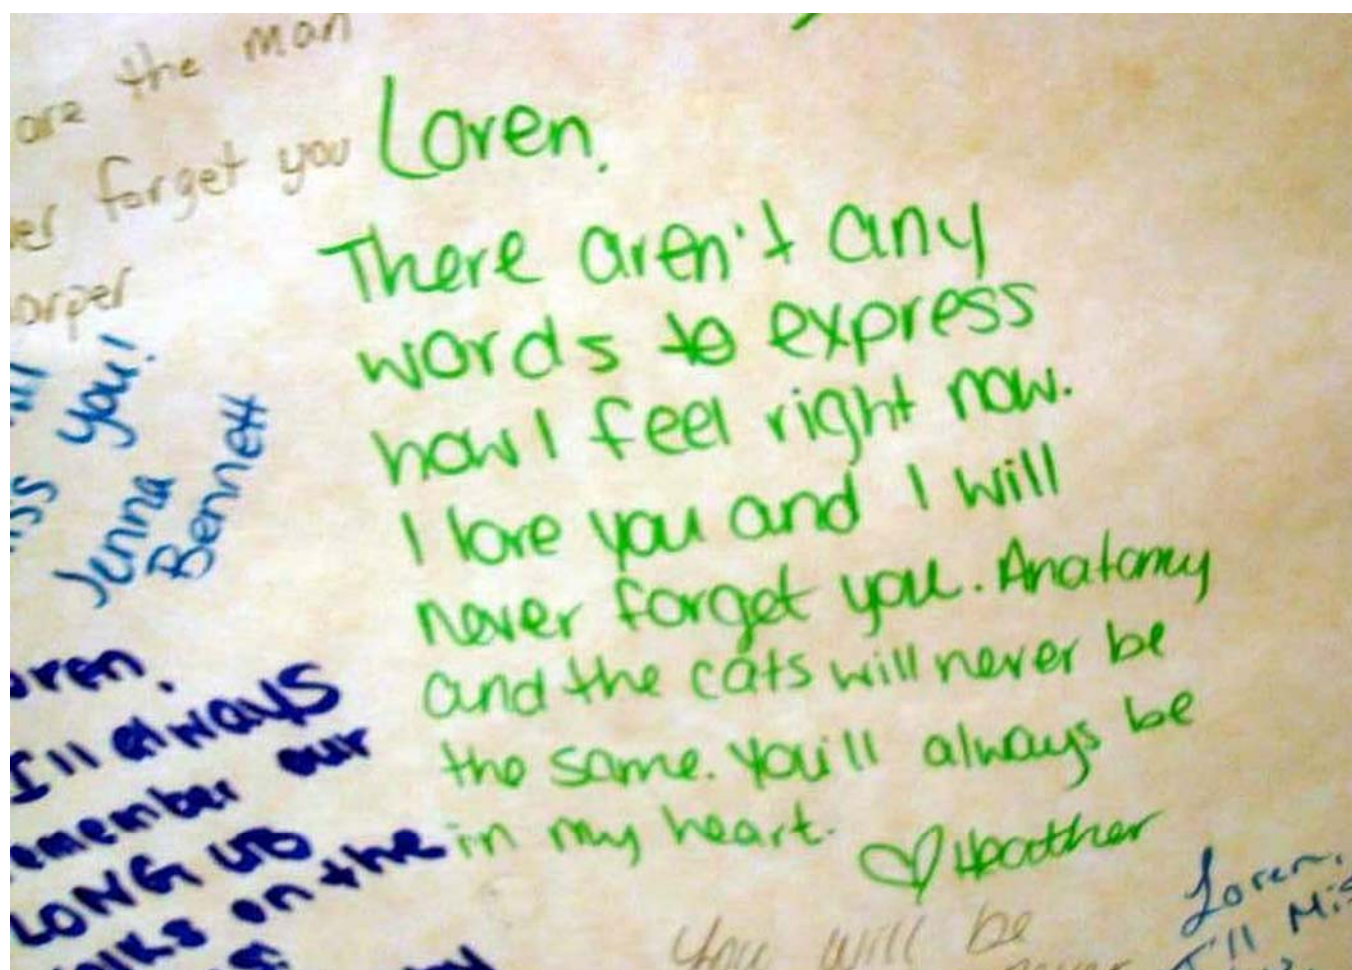 are the man
forget you
Loren,
There aren't any
words to express
how I feel right now.
I love you and I will
never forget you. Anatomy
and the cats will never be
the same. You'll always be
in my heart.
♡ Heather
you!
Jenna
Bennett
I'll always
our
LONG
on the
You will be
Loren,
I'll